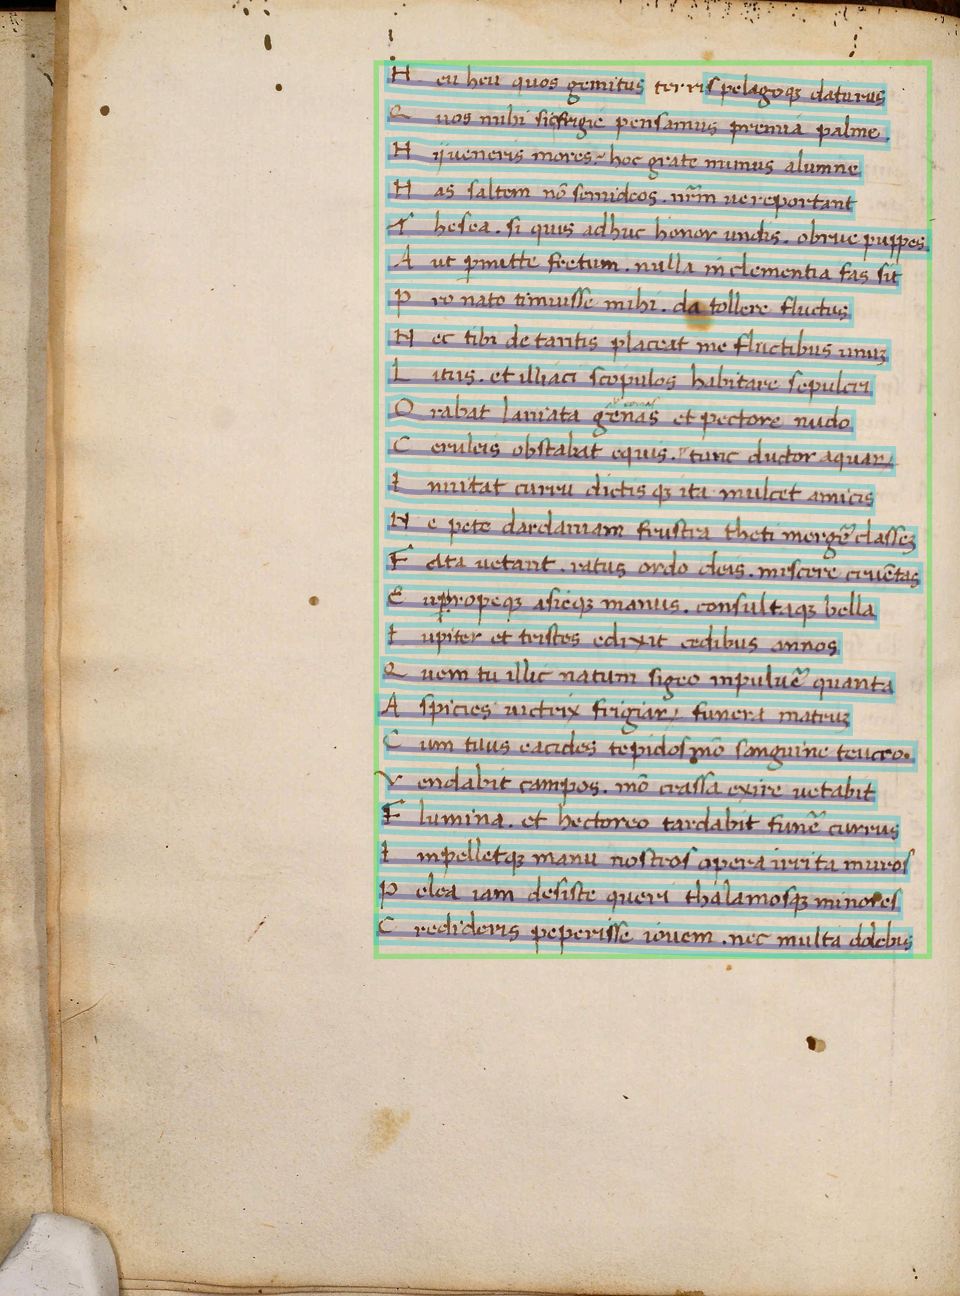 H eu heu quos gemitus terris pelagoqꝫ daturus
Q uos mihi sic frigie pensamus premia palme.
H ij ueneris mores. hoc grate munus alumne
H as saltem nō semideos. nr̄m ue reportant
T hesea. si quis adhuc honor undis. obrue puppes.
A ut ꝑmitte fretum. nulla inclementia fas sit
P ro nato timuisse mihi. da tollere fluctus
N ec tibi de tantis placeat me fluctibus unuꝫ
L itus. et illiaci scopulos habitare sepulcri
O rabat laniata genas et pectore nudo
C eruleis obstabat equis. tunc ductor aquaꝝ
I nuitat curru dictis qꝫ ita mulcet amicis
N e pete dardaniam frustra theti mergē classeꝫ
F ata uetant. ratus ordo deis. miscere cruētas
E uropeqꝫ asieqꝫ manus. consultaqꝫ bella
I upiter et tristes edixit cedibus annos
Q uem tu illic natum sigeo in puluē quanta
A spicies uictrix frigiaꝝ funera matruꝫ
C um tuus eacides tepidos mō sanguine teucro.
V endabit campos. mō crassa exire uetabit
F lumina. et hectoreo tardabit funē currus
I npelletqꝫ manu nostros opera irrita muros
P elea iam desiste queri thalamosqꝫ minores
C redideris peperisse iouem. nec multa dolebis